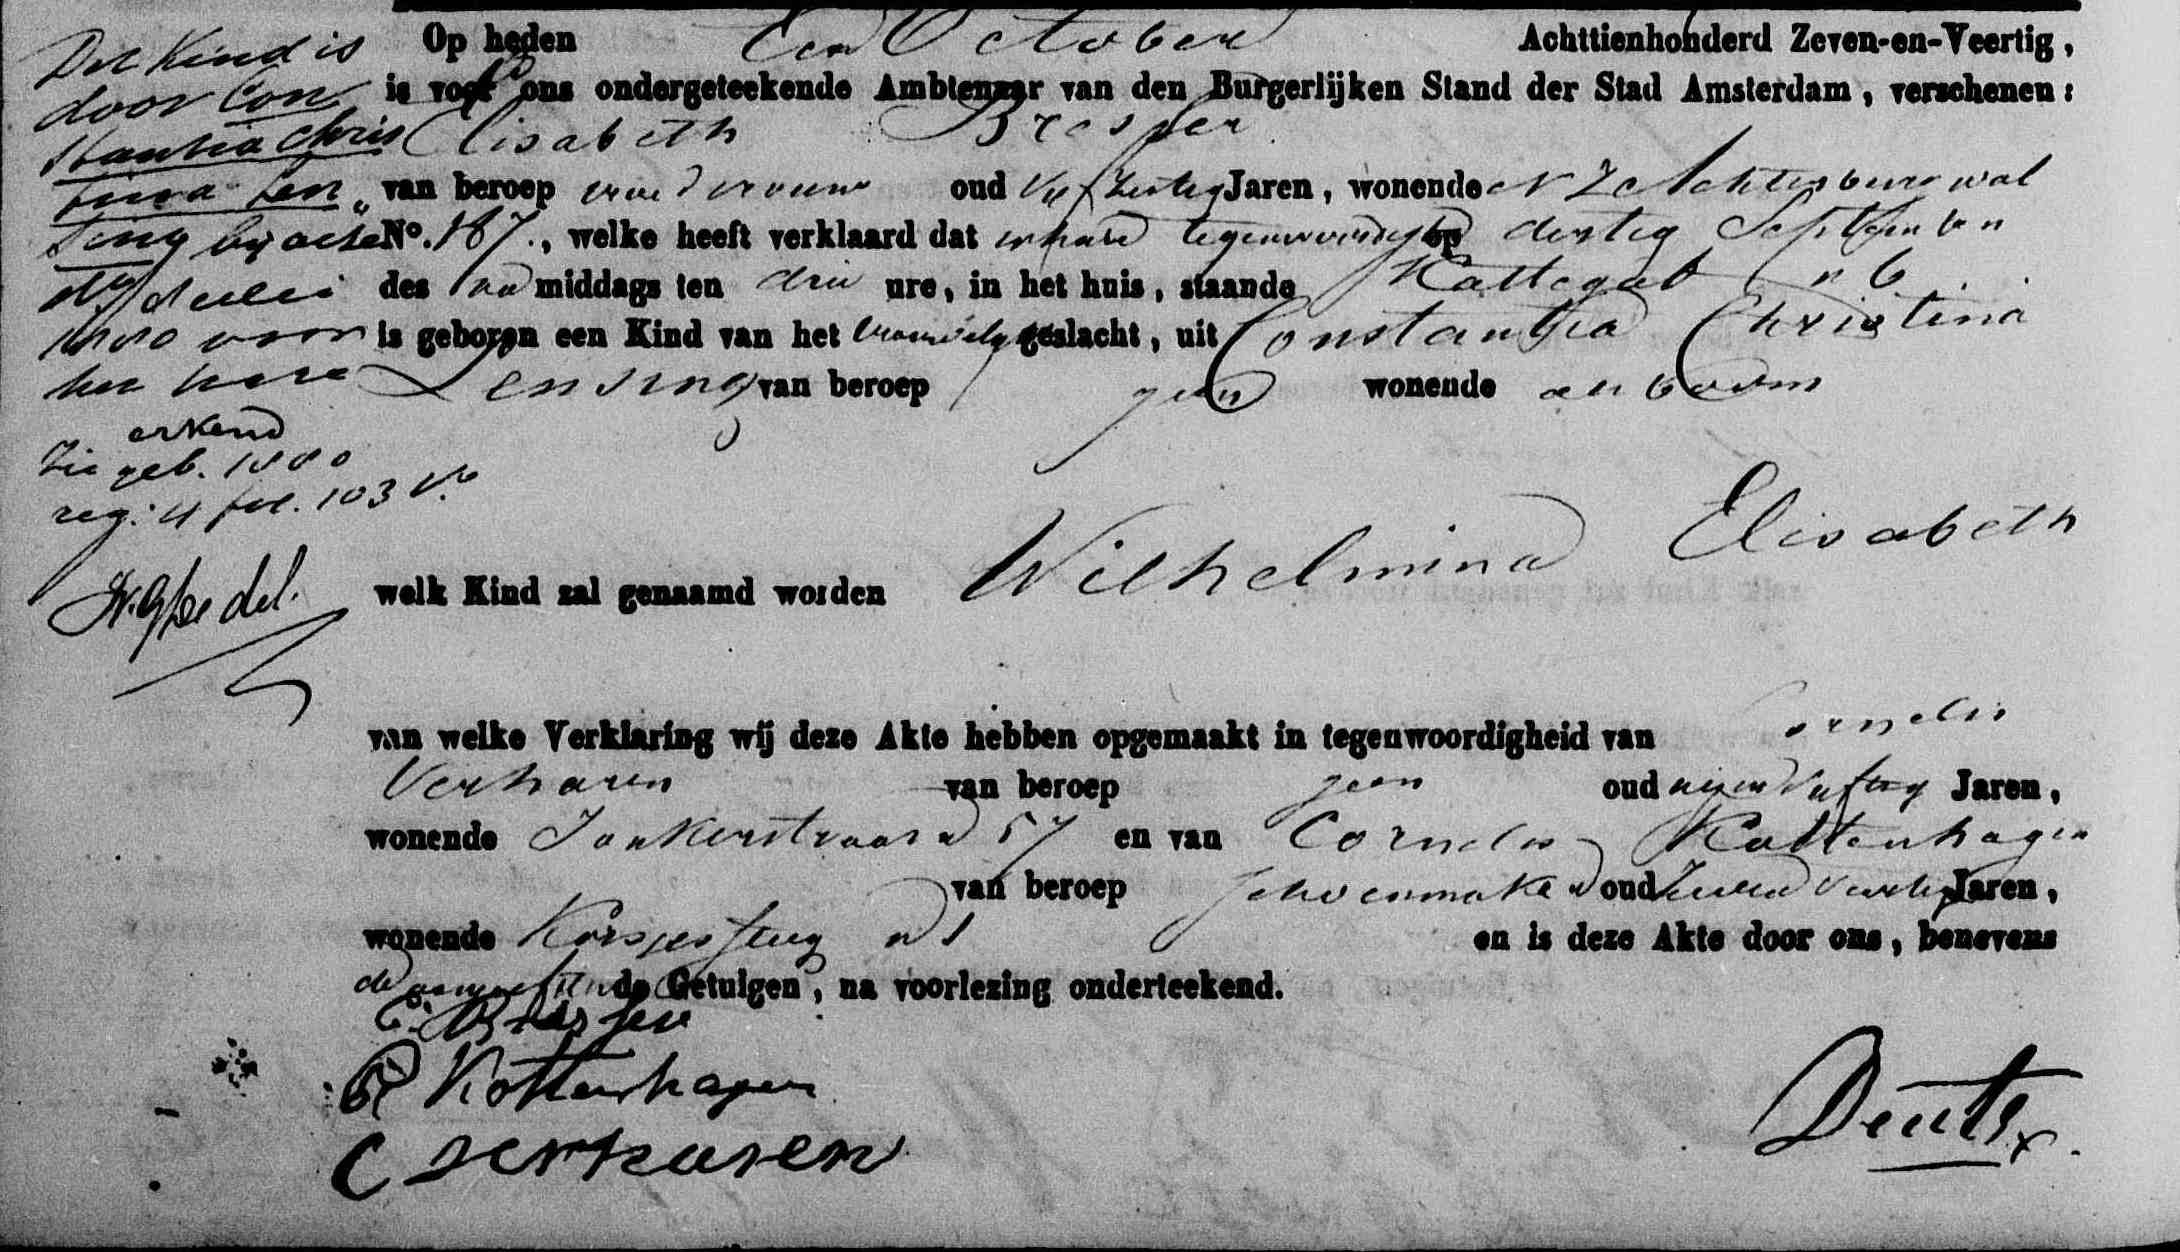 Dit Kind is
door Con
stantia Chris
tina Len„
sing bij acte
Julij
1880 voor
het hare
erkend
Zie geb. 1880
reg: 4 fol. 103 Vo
Op heden Een October Achttienhonderd Zeven-en-Veertig,
is voor ons ondergeteekende Ambtenaar van den Burgerlijken Stand der Stad Amsterdam, verschenen:
Elisabeth Bresser
van beroep vroedvrouw oud Vijf Zestig Jaren, wonende N Z Achterburgwal
No. 187., welke heeft verklaard dat in hare tegenwoordigheid op dertig September
des na middags ten drie ure, in het huis, staande Kattegat n 6
is geboren een Kind van het vrouwelijk geslacht, uit Constantia Christina
Lensing van beroep geen wonende als boven
welk Kind zal genaamd worden Wilhelmina Elisabeth
van welke Verklaring wij deze Akte hebben opgemaakt in tegenwoordigheid van Cornelis
Verharen van beroep geen oud negen Vijftig Jaren,
wonende Jonkerstraat n 57 en van Cornelis Kattenhagen
van beroep schoenmaker oud Twee Veertig Jaren,
wonende Korsjessteeg n 1 en is deze Akte door ons, benevens
de aangeefster de Getuigen, na voorlezing onderteekend.
E. Bresser
C Kottenhagen
C verharen